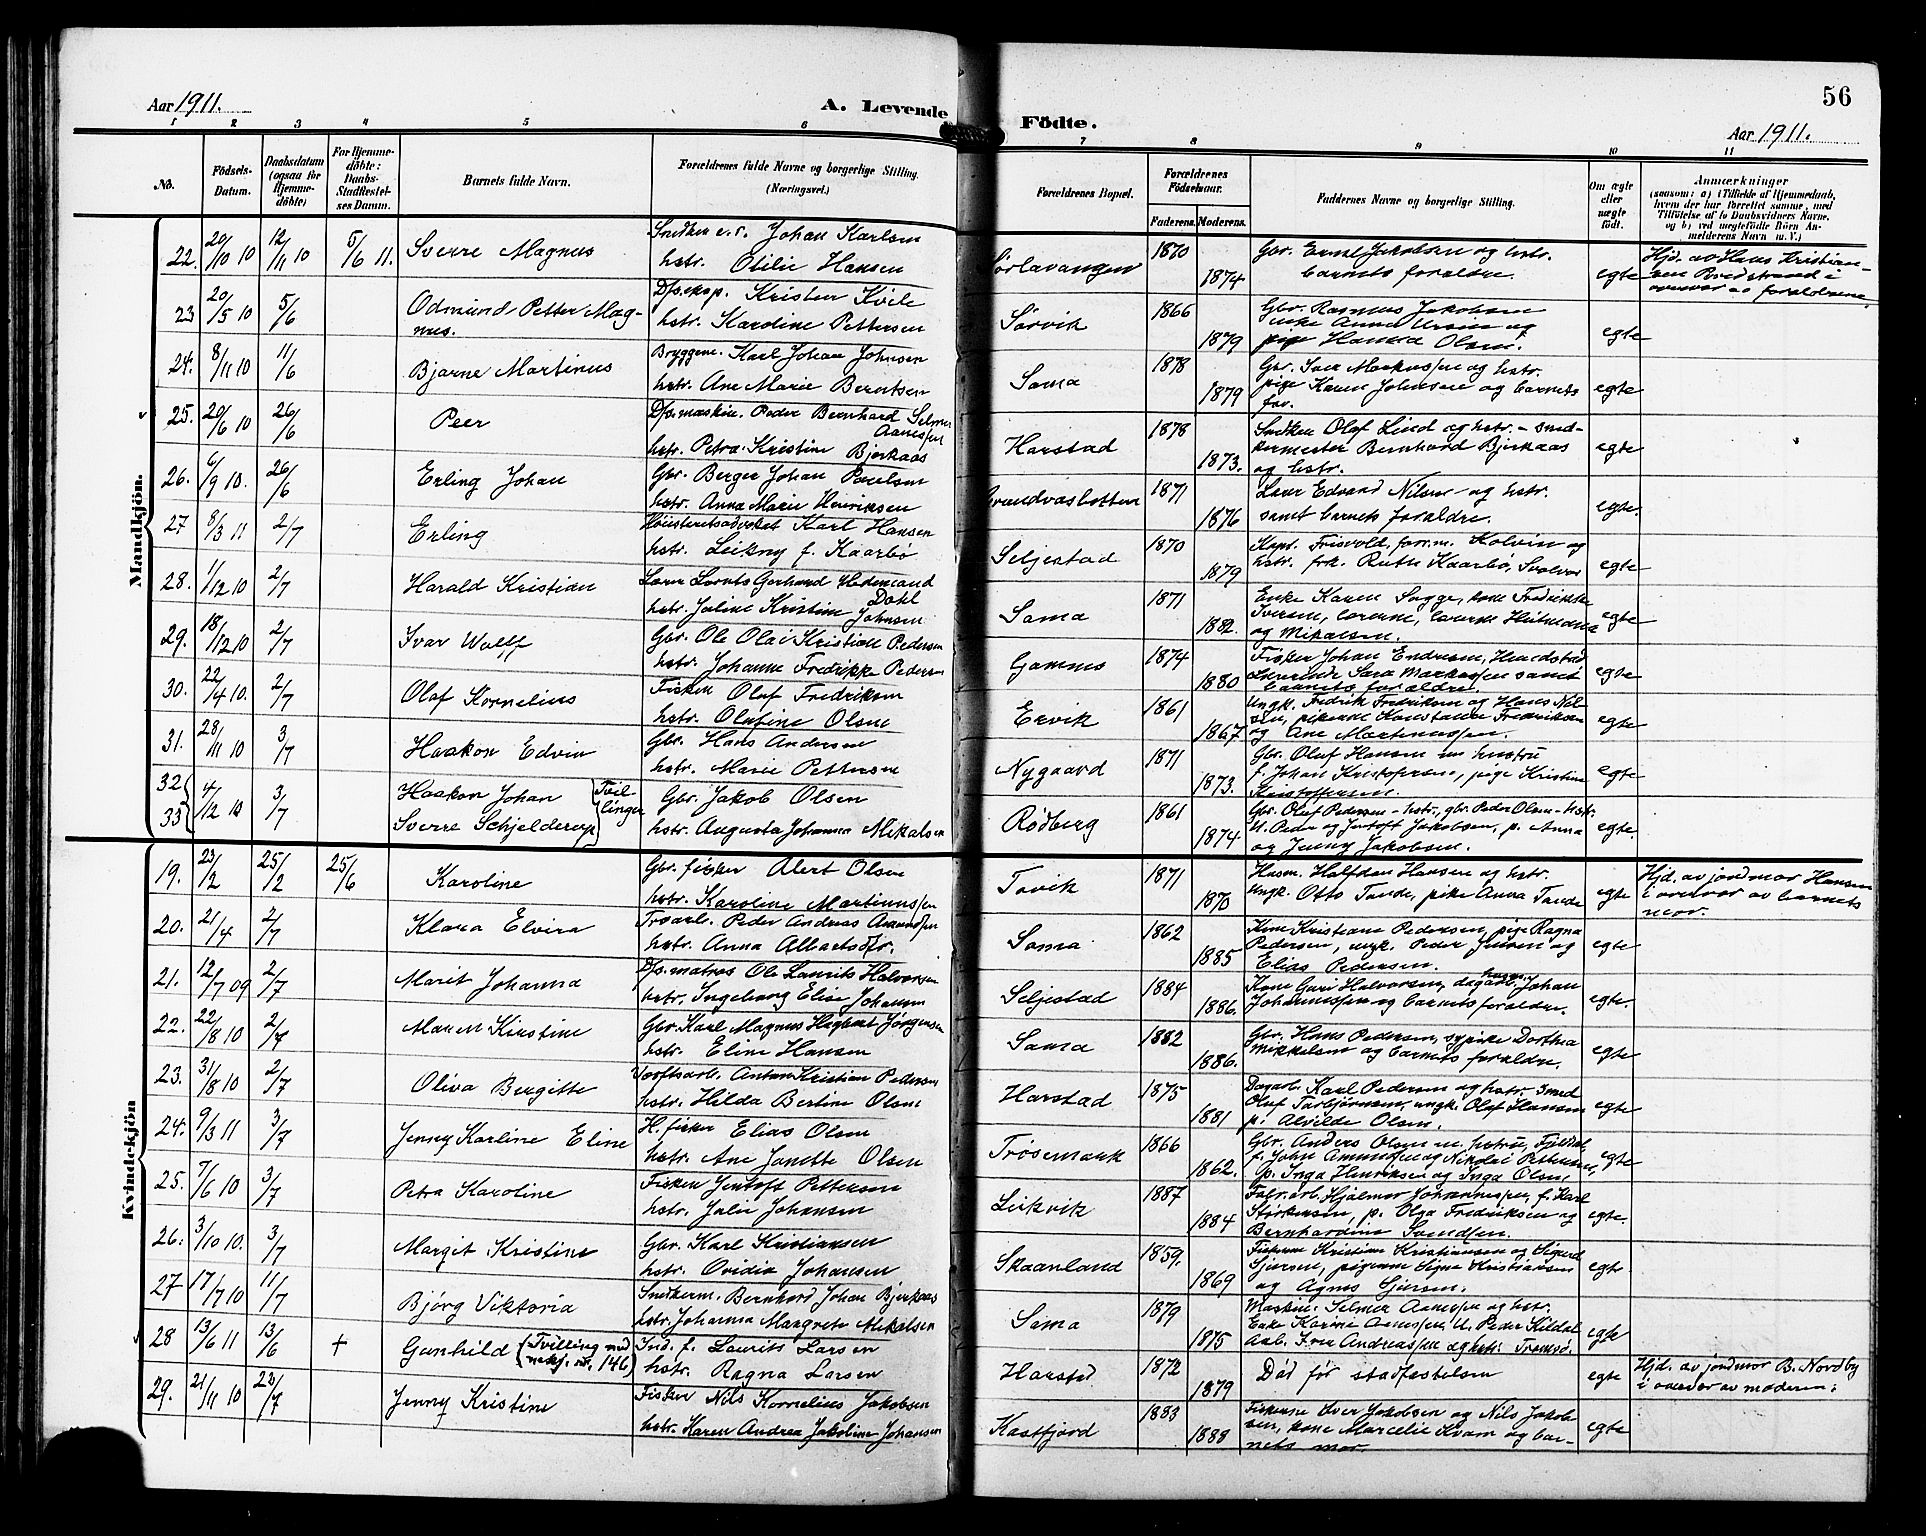 Aar 1911.
A. Levende
Födte.
56
Aar 1911.
1 2 3 4 5 6 7 8 9 10 11
No.
Födsels-Datum.
Daabsdatum (ogsaa for Hjemme-döbte)
For Hjemme-döbte: Daabs-Stadfæstel-ses Datum.
Barnets fulde Navn.
Forældrenes fulde Navne og borgerlige Stilling. (Næringsvei.)
Forældrenes Bopæl.
Forældrenes Födselsaar.
Faderens. Moderens.
Faddernes Navne og borgerlige Stilling.
Om ægte eller uægte födt.
Anmærkninger
(saasom: a) i Tilfælde af Hjemmedaab, hvem der har forrettet samme, med Tilföielse af to Daabsvidners Navne, og b) ved uægtefödte Börn An-melderens Navn m. V.)
Mandkjön.
22. 20/10 10 12/11 10 5/6 11. Sverre Magnus
Johan Karlsen
hstr. Otilie Hansen
1870 1874
Gbr. Ernst Jakobsen og hstr.
barnets forældre.
egte
Hjd. av Hans Kristian-
sen Bredstrand i
overvær av forældrene
23 20/5 10 5/6 Odmund Petter Mag-
nus.
Dfs.eksp. Kristen Kvile
hstr. Karoline Pettersen
Sørvik 1866 1879
Gbr. Rasmus Jakobsen
enke Anna Ursin og
pige Hanna Olsen.
egte
24. 8/11 10 11/6 Bjarne Martinus
Bryggem. Karl Johan Johnsen
hstr. Ane Marie Berntsen
Sama 1878 1879
Gbr. Iver Markussen og hstr.
pige Karen Johnsen og barnets
far.
egte
25. 20/6 10 26/6 Peer
Dfs.maskin. Peder Bernhard Selmer
Aanessen
hstr. Petra Kristine Bjerkaas
Harstad 1878 1873.
Snedker Olaf Lind og hstr. - sned-
kermester Bernhard Bjerkaas
og hstr.
egte
26. 6/9 10. 26/6 Erling Johan
Gbr. Berger Johan Paulsen
hstr. Anna Marie Henriksen
1871 1876
Lærer Edvard Nilsen og hstr.
samt barnets forældre.
egte.
27 8/3 11 2/7 Erling
Høiesteretsadvokat Karl Hansen
hstr. Leikny f. Kaarbø
Seljestad 1870 1879
Kapt. Frisvold, Kolvin og
hstr. frk. Ruth Kaarbø, Svolvær
egte
28. 1/12 10 2/7 Harald Kristian
Lærer Lorents Gerhard Hedemand
Dahl
hstr. Joline Kristine Johnsen
Sama 1871 1882.
Enke Karen Sygge, kone Fredrikke
Iversen, lærerne
og Mikalsen.
egte
29. 18/12 10 2/7 Ivar Wulff
Gbr. Ole Olai Kristian Pedersen
hstr. Johanne Fredrikke Pedersen
Gamnes 1874 1880
Fisker Johan Endresen,
lærerinde Sara Markussen samt
barnets forældre.
egte
30. 22/4 10. 2/7 Olaf Kornelius
Fisker Olaf Fredriksen
hstr. Olafine Olsen
Ervik 1861 1867
Ungk. Fredrik Fredriksen og Hans Nil-
sen, pikerne Konstanse Fredriksen
og Ane Martinussen.
egte
31. 28/11 10 3/7 Haakon Edvin
Gbr. Hans Andersen
hstr. Marie Pettersen
Nygaard 1871 1873.
Gbr. Oluf Hansen m hustru
f. Johan Kristofersen, pige Kristine
Kristoffersen.
egte
32 33 4/12 10 3/7 Haakon Johan
Sverre Schjelderup
Tvil-
linger
Gbr. Jakob Olsen
hstr. Augusta Johanna Mikalsen
Rödberg 1861 1874
Gbr. Olaf Pedersen - hstr., gbr. Peder Olsen - hstr.
U. Peder og Jentoft Jakobsen, p. Anna
og Jenny Jakobsen.
egte.
Kvindekjön
19. 23/2 25/2 25/6 Karoline
Gbr. fisker Alert Olsen
hstr. Karoline Martinussen
Tovik 1871 1870
Husm. Halfdan Hansen og hstr.
Ungk. Otto Tande, pike Anna Tande
egte
Hjd. av jordmor Hansen
i overvær av barnets
mor.
20. 21/4 2/7 Klara Elvira
Peder Andreas Amundsen
hstr. Anna Albertsdtr.
Sama 1862 1885
Kone Kristiane Pedersen, pige Ragna
Pedersen, ungk. Peder Jensen og
Elias Pedersen.
egte
21. 12/7 09 2/7 Marit Johanna
Dfs.matros Ole Laurits Halvorsen
hstr. Ingeborg Elise Johansen
Seljestad 1884 1886.
Kone Guri Halvorsen, dagarb. Johan
Johannessen og barnets forældre.
egte.
22. 22/8 10 2/7 Maren Kirstine
Gbr. Karl Magnus Hegbart Jørgensen
hstr. Eline Hansen
Sama 1882 1886.
Gbr. Hans Pedersen, sypike Dorthea
Mikkelsen og barnets forældre.
egte
23. 31/8 10 2/7 Oliva Bergitte
Værftsarb. Anton Kristian Pedersen
hstr. Hilda Bertine Olsen
Harstad 1875 1881
Dagarb. Karl Pedersen og hstr. Smed
Oluf Torbjørnsen, ungk. Olaf Hansen
p. Alvilde Olsen.
egte
24. 9/3 11 3/7 Jenny Karline Eline
H. fisker Elias Olsen
hstr. Ane Janette Olsen
Trøsemark 1866 1862.
Gbr. Anders Olsen m. hstru,
f. John Amundsen og Nikolai Pettersen,
p. Inga Henriksen og Inga Olsen
egte
25. 7/6 10 3/7 Petra Karoline
Fisker Jentoft Pettersen
hstr. Julie Johansen
Leikvik 1887 1884
Fabr.arb. Hjalmar Johannessen, f. Karl
Størkersen, p. Olga Fredriksen og
Bernhardine Svendsen.
egte.
26. 3/10 10. 3/7 Margit Kristine
Gbr. Karl Kristiansen
hstr. Ovidia Johansen
Skaanland 1859. 1869
Fiskerne Kristian Kristiansen og Sigurd
pigerne Signe Kristiansen
og Agnes
egte
27 17/7 10 11/7 Bjórg Viktoria
Snedkerm. Bernhard Johan Bjerkaas
hstr. Johanna Margrete Mikalsen
Sama 1879 1875
Maskin. Selmer Aanessen og hstr.
Enke Karine Aanessen, U. Peder Kildal
Aab. Iver Andreassen og hstr. Tromsø.
egte
28 13/6 11 13/6 + Gunhild (Tvilling med
mskj. nr. 146)
Ind. f. Laurits Larsen
hstr. Ragna Larsen
Harstad 1872 1879
Död før stadfæstelsen
egte
Hjd. av jordmor B. Nordby
i overvær av moderen.
29. 21/11 10 23/7 Jenny Kristine
Fisker Nils Kornelius Jakobsen
hstr. Karen Andrea Jakoline Johansen
Kastfjord 1883 1888
Fiskerne Iver Jakobsen og Nils Jakob-
sen, kone Marcelie Kvam og bar-
nets mor
egte